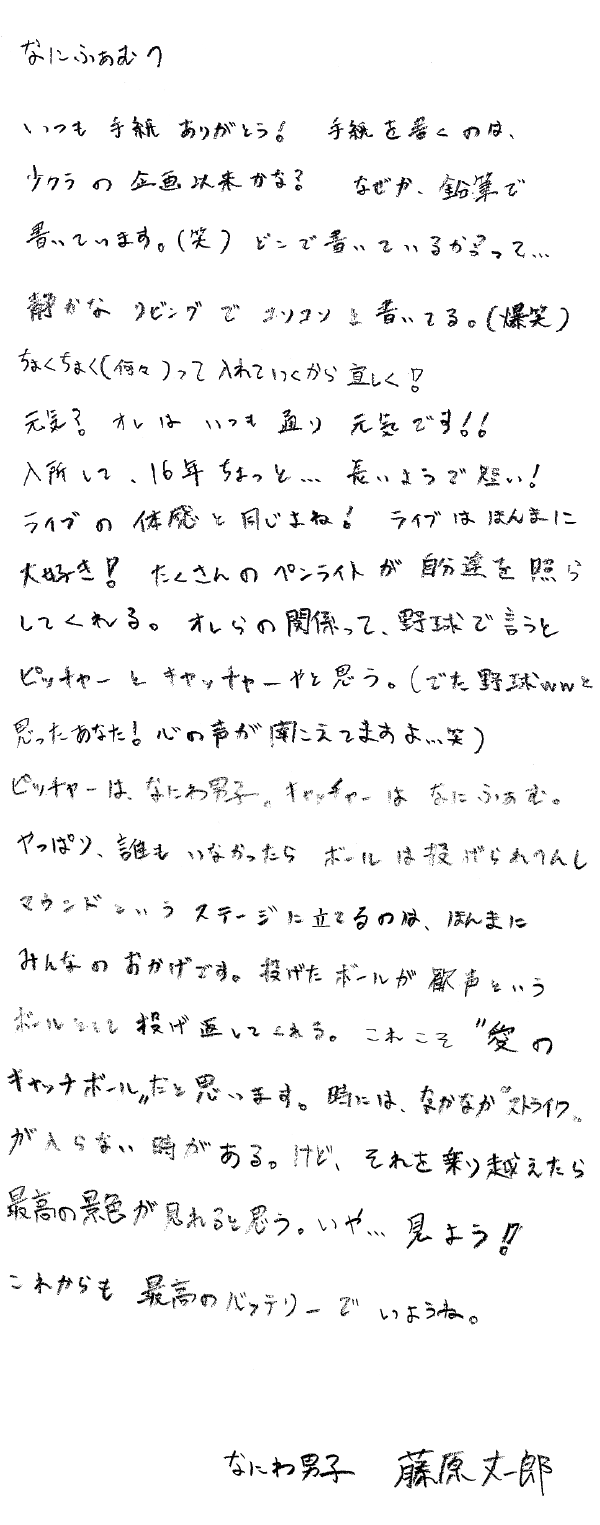 なにふぁむへ
いつも 手紙 ありがとう! 手紙を書くのは、
少クラの 企画以来かな? なぜか、鉛筆で
書いています。(笑) どこで書いているか?って…
静かな リビングで コソコソと書いてる。(爆笑)
ちょくちょく(何々)って入れていくから宜しく!
元気? オレは いつも通り 元気です!!
入所して、16年ちょっと… 長いようで短い!
ライブの 体感と同じよね! ライブは ほんまに
大好き! たくさんの ペンライトが 自分達を照ら
してくれる。 オレらの関係って、野球で言うと
ピッチャーと キャッチャーやと思う。(でた野球wwと
思ったあなた! 心の声が聞こえてますよ…笑)
ピッチャーは、なにわ男子。キャッチャーは なにふぁむ。
やっぱり、誰も いなかったら ボールは投げられへんし
マウンドという ステージに立てるのは、ほんまに
みんなの おかげです。投げた ボールが 歓声という
ボールとして 投げ返してくれる。 これこそ "愛の
キャッチボール"だと思います。時には、なかなか"ストライク"
が入らない 時がある。けど、それを乗り越えたら
最高の景色が見れると思う。いや… 見よう!!
これからも 最高のバッテリーで いようね。
なにわ男子 藤原丈一郎